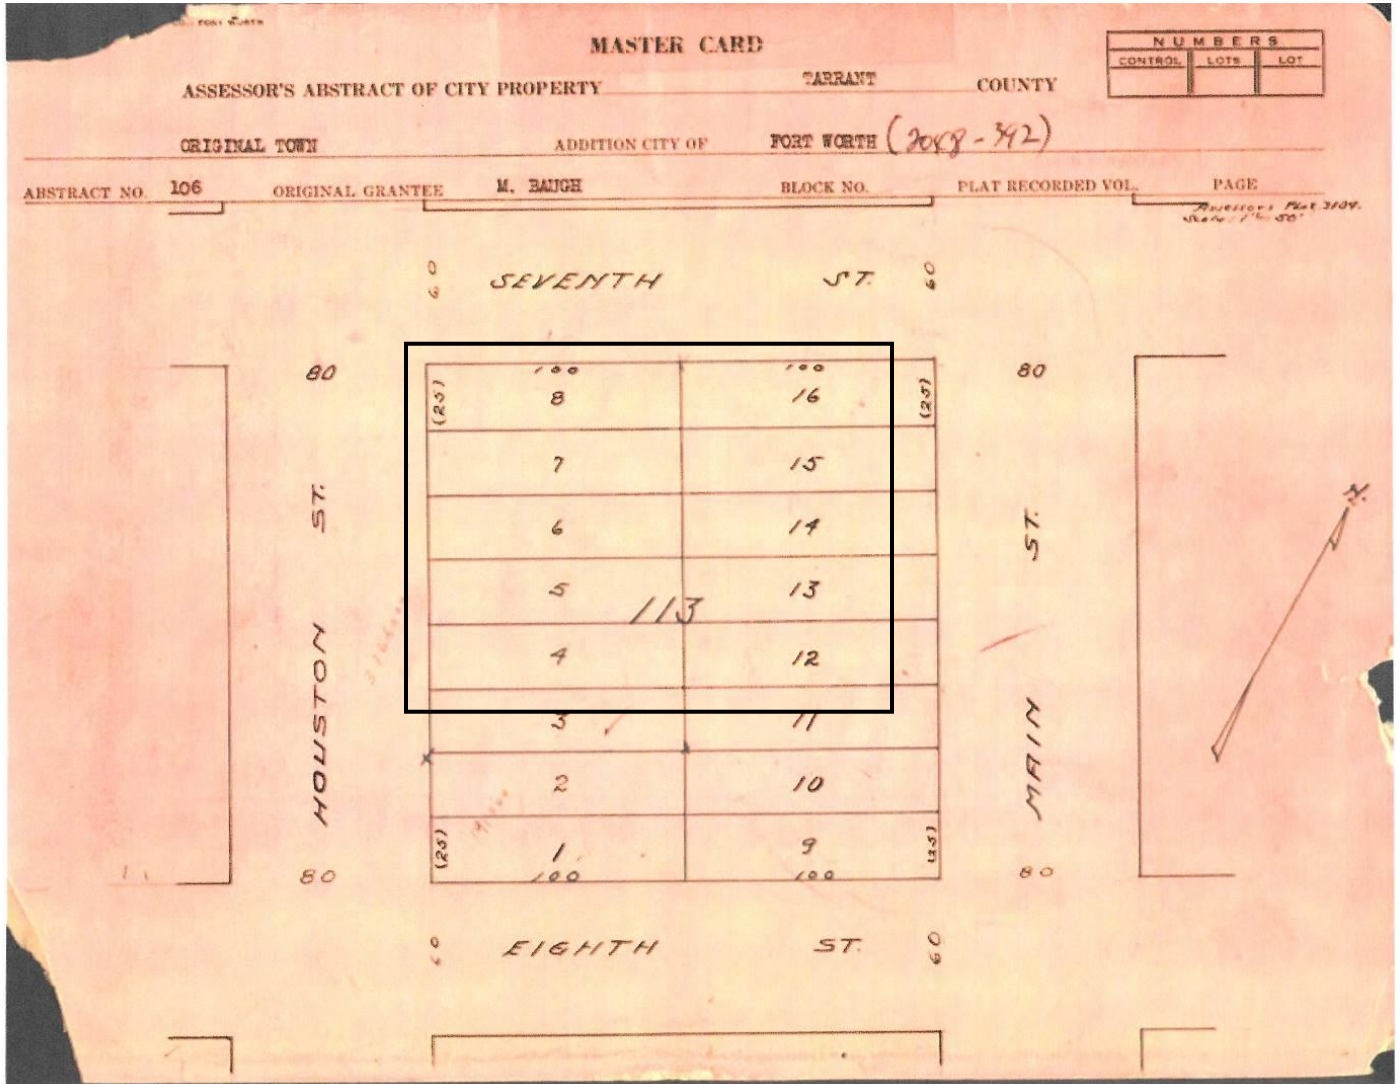 FORT WORTH
MASTER CARD
NUMBERS
CONTROL LOTS LOT
ASSESSOR'S ABSTRACT OF CITY PROPERTY TARRANT COUNTY
ORIGINAL TOWN ADDITION CITY OF FORT WORTH (2048-392)
ABSTRACT NO. 106 ORIGINAL GRANTEE M. BAUGH BLOCK NO. PLAT RECORDED VOL. PAGE
Assessors Plat 3109.
Scale: 1"=50'
60 SEVENTH ST. 60
80 100 100 80
(25) 8 16 (25)
7 15
ST. 6 14 ST. N.
5 13
113
4 12
HOUSTON 3 11 MAIN
2 10
(25) 1 9 (25)
80 100 100 80
60 EIGHTH ST. 60